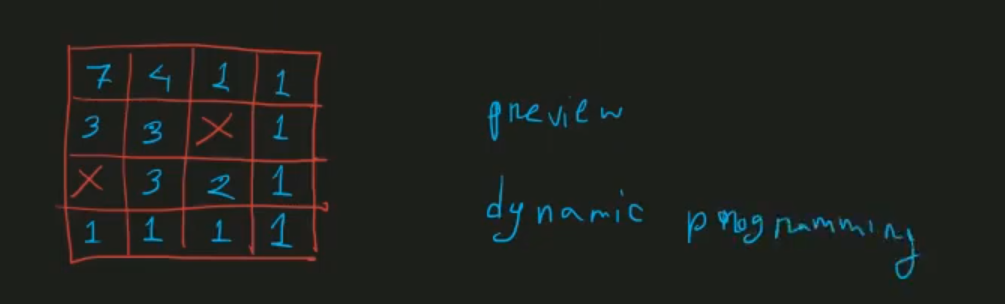 7 4 1 1
3 3 X 1
X 3 2 1
1 1 1 1
preview
dynamic programming